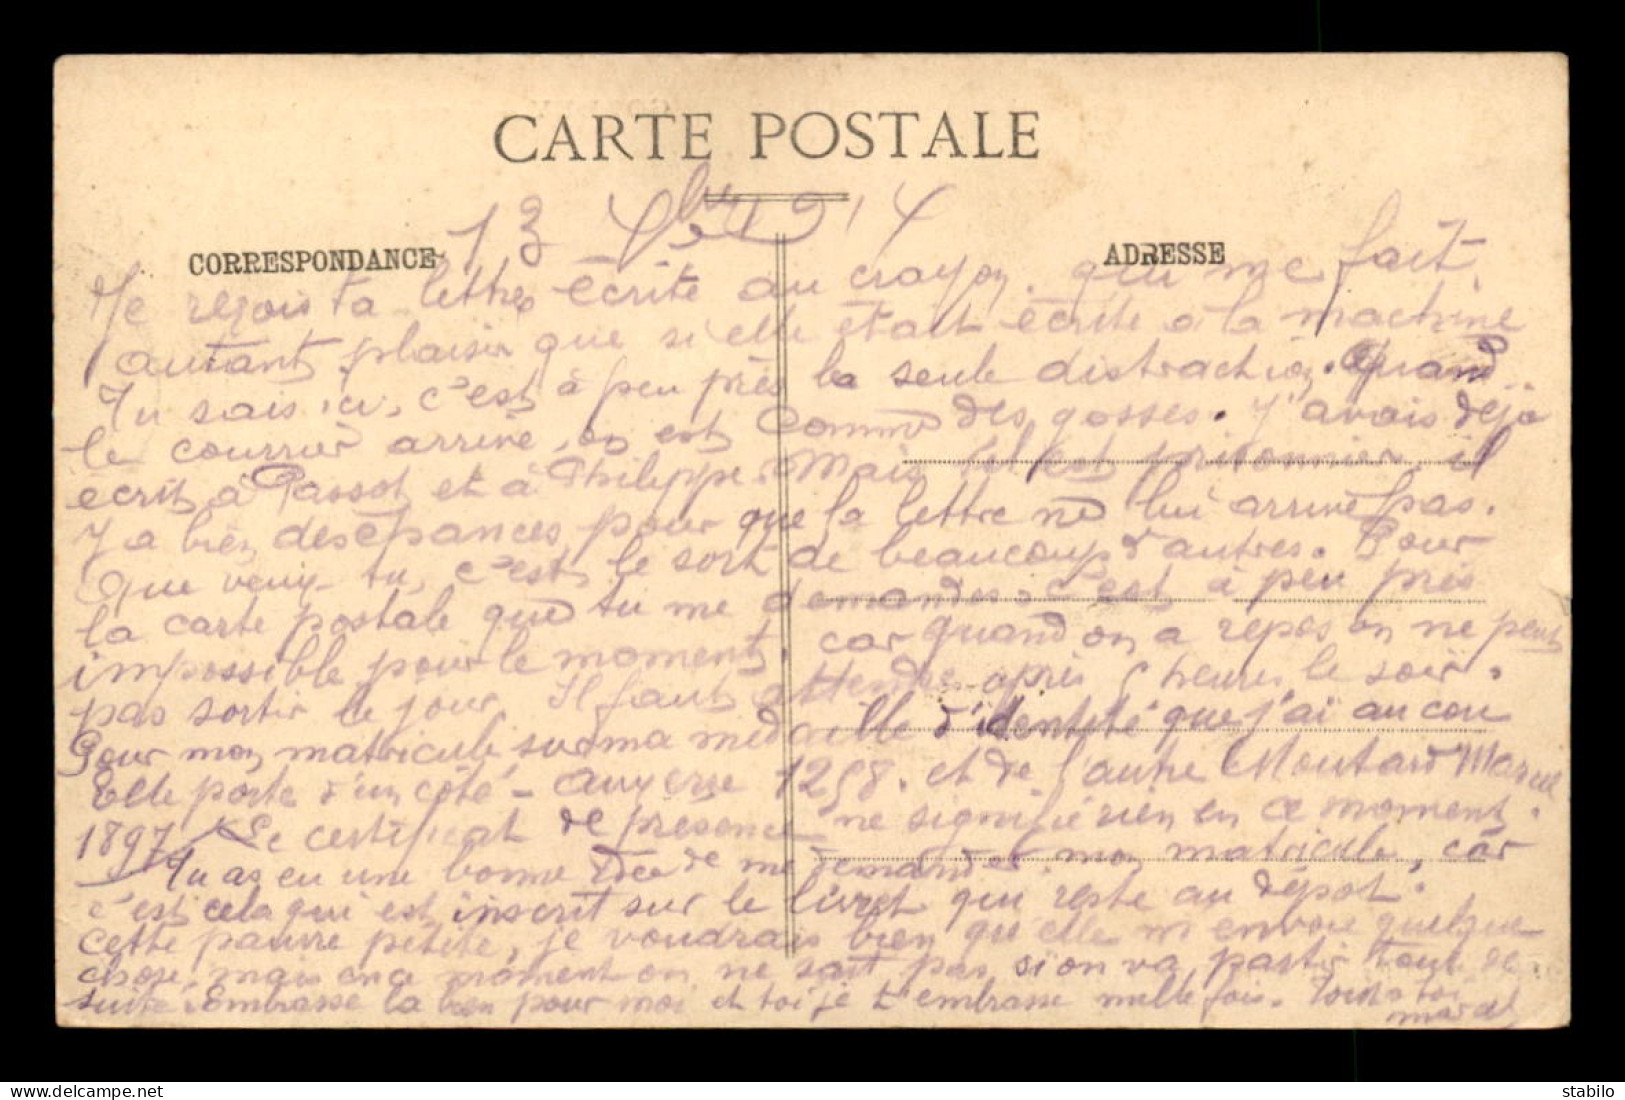 CARTE POSTALE
CORRESPONDANCE
ADRESSE
13 bre 1914
Je reçois ta lettre écrite au crayon. qui me fait
autant plaisir que si elle était écrite à la machine
Tu sais ici, c'est à peu près la seule distraction. Quand
le courrier arrive, on est comme des gosses. J'avais déjà
écrit à Passot et à Philippe. Mais s'il est prisonnier, il
y a bien des chances pour que la lettre ne lui arrive pas.
Que veux-tu, c'est le sort de beaucoup d'autres. Pour
la carte postale que tu me demandes, c'est à peu près
impossible pour le moment. car quand on a repos on ne peut
pas sortir le jour. Il faut attendre après 5 heures le soir.
Pour mon matricule sur ma médaille d'identité que j'ai au cou
Elle porte d'un côté - Auxerre 1258. et de l'autre Moutard Marcel
1897. Le certificat de présence ne signifie rien en ce moment.
Tu as eu une bonne idée de me demander mon matricule, car
c'est cela qui est inscrit sur le livret qui reste au dépot.
Cette pauvre petite, je voudrais bien qu'elle m'envoie quelque
chose, mais en ce moment on ne sait pas si on va partir tout de
suite. Embrasse la bien pour moi et toi je t'embrasse mille fois. Tout à toi
Marcel
stabilo
www.delcampe.net